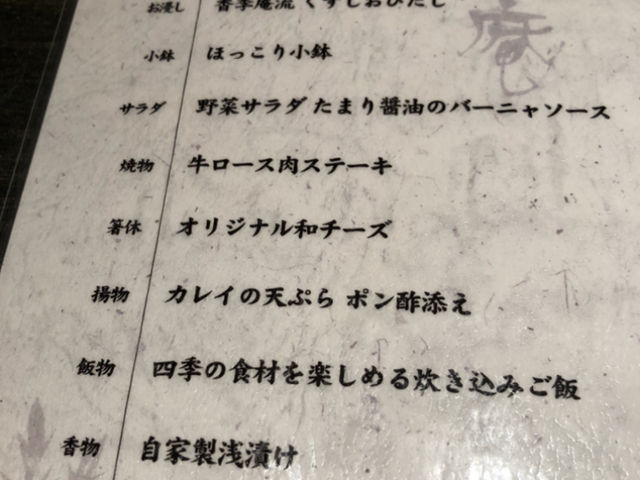 お浸し 香季庵流 くずしおひたし
小鉢 ほっこり小鉢
サラダ 野菜サラダ たまり醤油のバーニャソース
焼物 牛ロース肉ステーキ
箸休 オリジナル和チーズ
揚物 カレイの天ぷら ポン酢添え
飯物 四季の食材を楽しめる炊き込みご飯
香物 自家製浅漬け